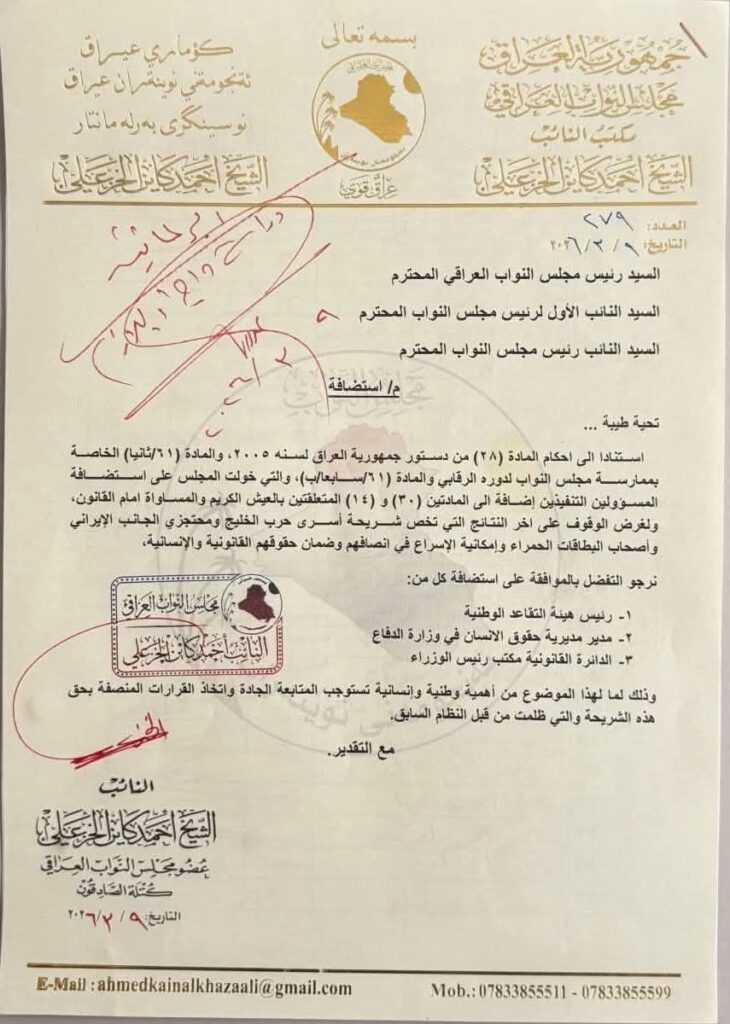 جمهورية العراق
مجلس النواب العراقي
مكتب النائب
الشيخ أحمد كاين الخزعلي
بسمه تعالى
عراق قوي
كۆماری عیراق
ئەنجومەنی نوێنەران عیراق
نوسینگری بەرلەمانتار
الشيخ أحمد كاين الخزعلي
العدد: ٢٧٩
التاريخ: ٩ / ٣ / ٢٠٢٦
السيد رئيس مجلس النواب العراقي المحترم
السيد النائب الأول لرئيس مجلس النواب المحترم
السيد النائب رئيس مجلس النواب المحترم
م/ استضافة
تحية طيبة ...
استنادا الى احكام المادة (٢٨) من دستور جمهورية العراق لسنه ٢٠٠٥، والمادة (٦١/ثانيا) الخاصة
بممارسة مجلس النواب لدوره الرقابي والمادة (٦١/سابعا/ب)، والتي خولت المجلس على استضافة
المسؤولين التنفيذين إضافة الى المادتين (٣٠) و (١٤) المتعلقتين بالعيش الكريم والمساواة امام القانون،
ولغرض الوقوف على اخر النتائج التي تخص شريحة أسرى حرب الخليج ومحتجزي الجانب الإيراني
وأصحاب البطاقات الحمراء وإمكانية الإسراع في انصافهم وضمان حقوقهم القانونية والإنسانية،
نرجو التفضل بالموافقة على استضافة كل من:
١- رئيس هيئة التقاعد الوطنية
٢- مدير مديرية حقوق الانسان في وزارة الدفاع
٣- الدائرة القانونية مكتب رئيس الوزراء
مجلس النواب العراقي
النائب أحمد كاين الخزعلي
وذلك لما لهذا الموضوع من أهمية وطنية وإنسانية تستوجب المتابعة الجادة واتخاذ القرارات المنصفة بحق
هذه الشريحة والتي ظلمت من قبل النظام السابق.
مع التقدير.
النائب
الشيخ أحمد كاين الخزعلي
عضو مجلس النواب العراقي
كتلة الصادقون
التاريخ: ٩ / ٣ / ٢٠٢٦
E-Mail : ahmedkainalkhazaali@gmail.com
Mob.: 07833855511 - 07833855599